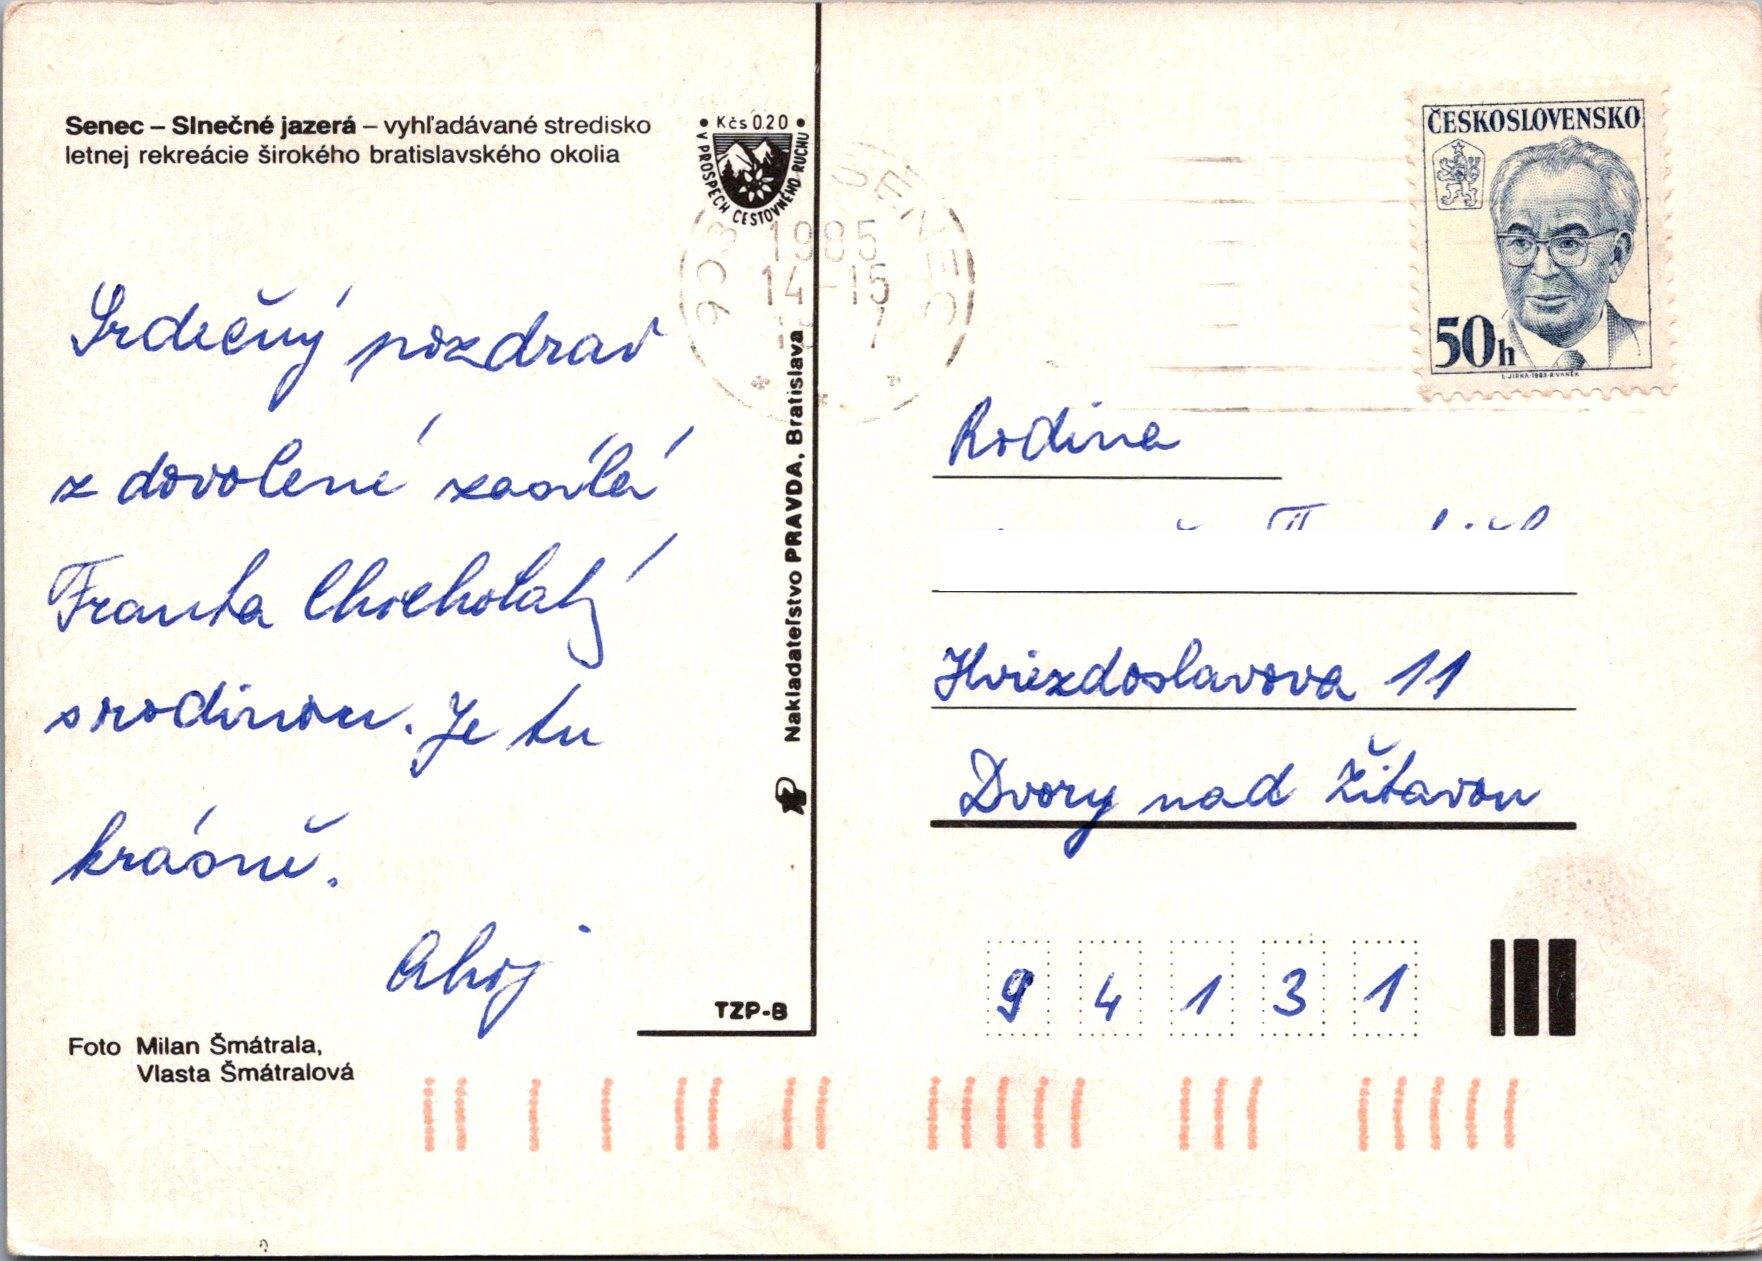 Senec – Slnečné jazerá – vyhľadávané stredisko
letnej rekreácie širokého bratislavského okolia
Kčs 0.20
V PROSPECH CESTOVNÉHO RUCHU
903 SENEC
1985
14-15
7
ČESKOSLOVENSKO
50h
L. JIRKA-1983-R. VANĚK
Srdečný pozdrav
z dovolené zasílá
Franta Chocholatý
s rodinou. Je tu
krásně.
Ahoj
Nakladateľstvo PRAVDA, Bratislava
TZP-B
Foto Milan Šmátrala,
Vlasta Šmátralová
Rodina
Hviezdoslavova 11
Dvory nad Žitavou
94131